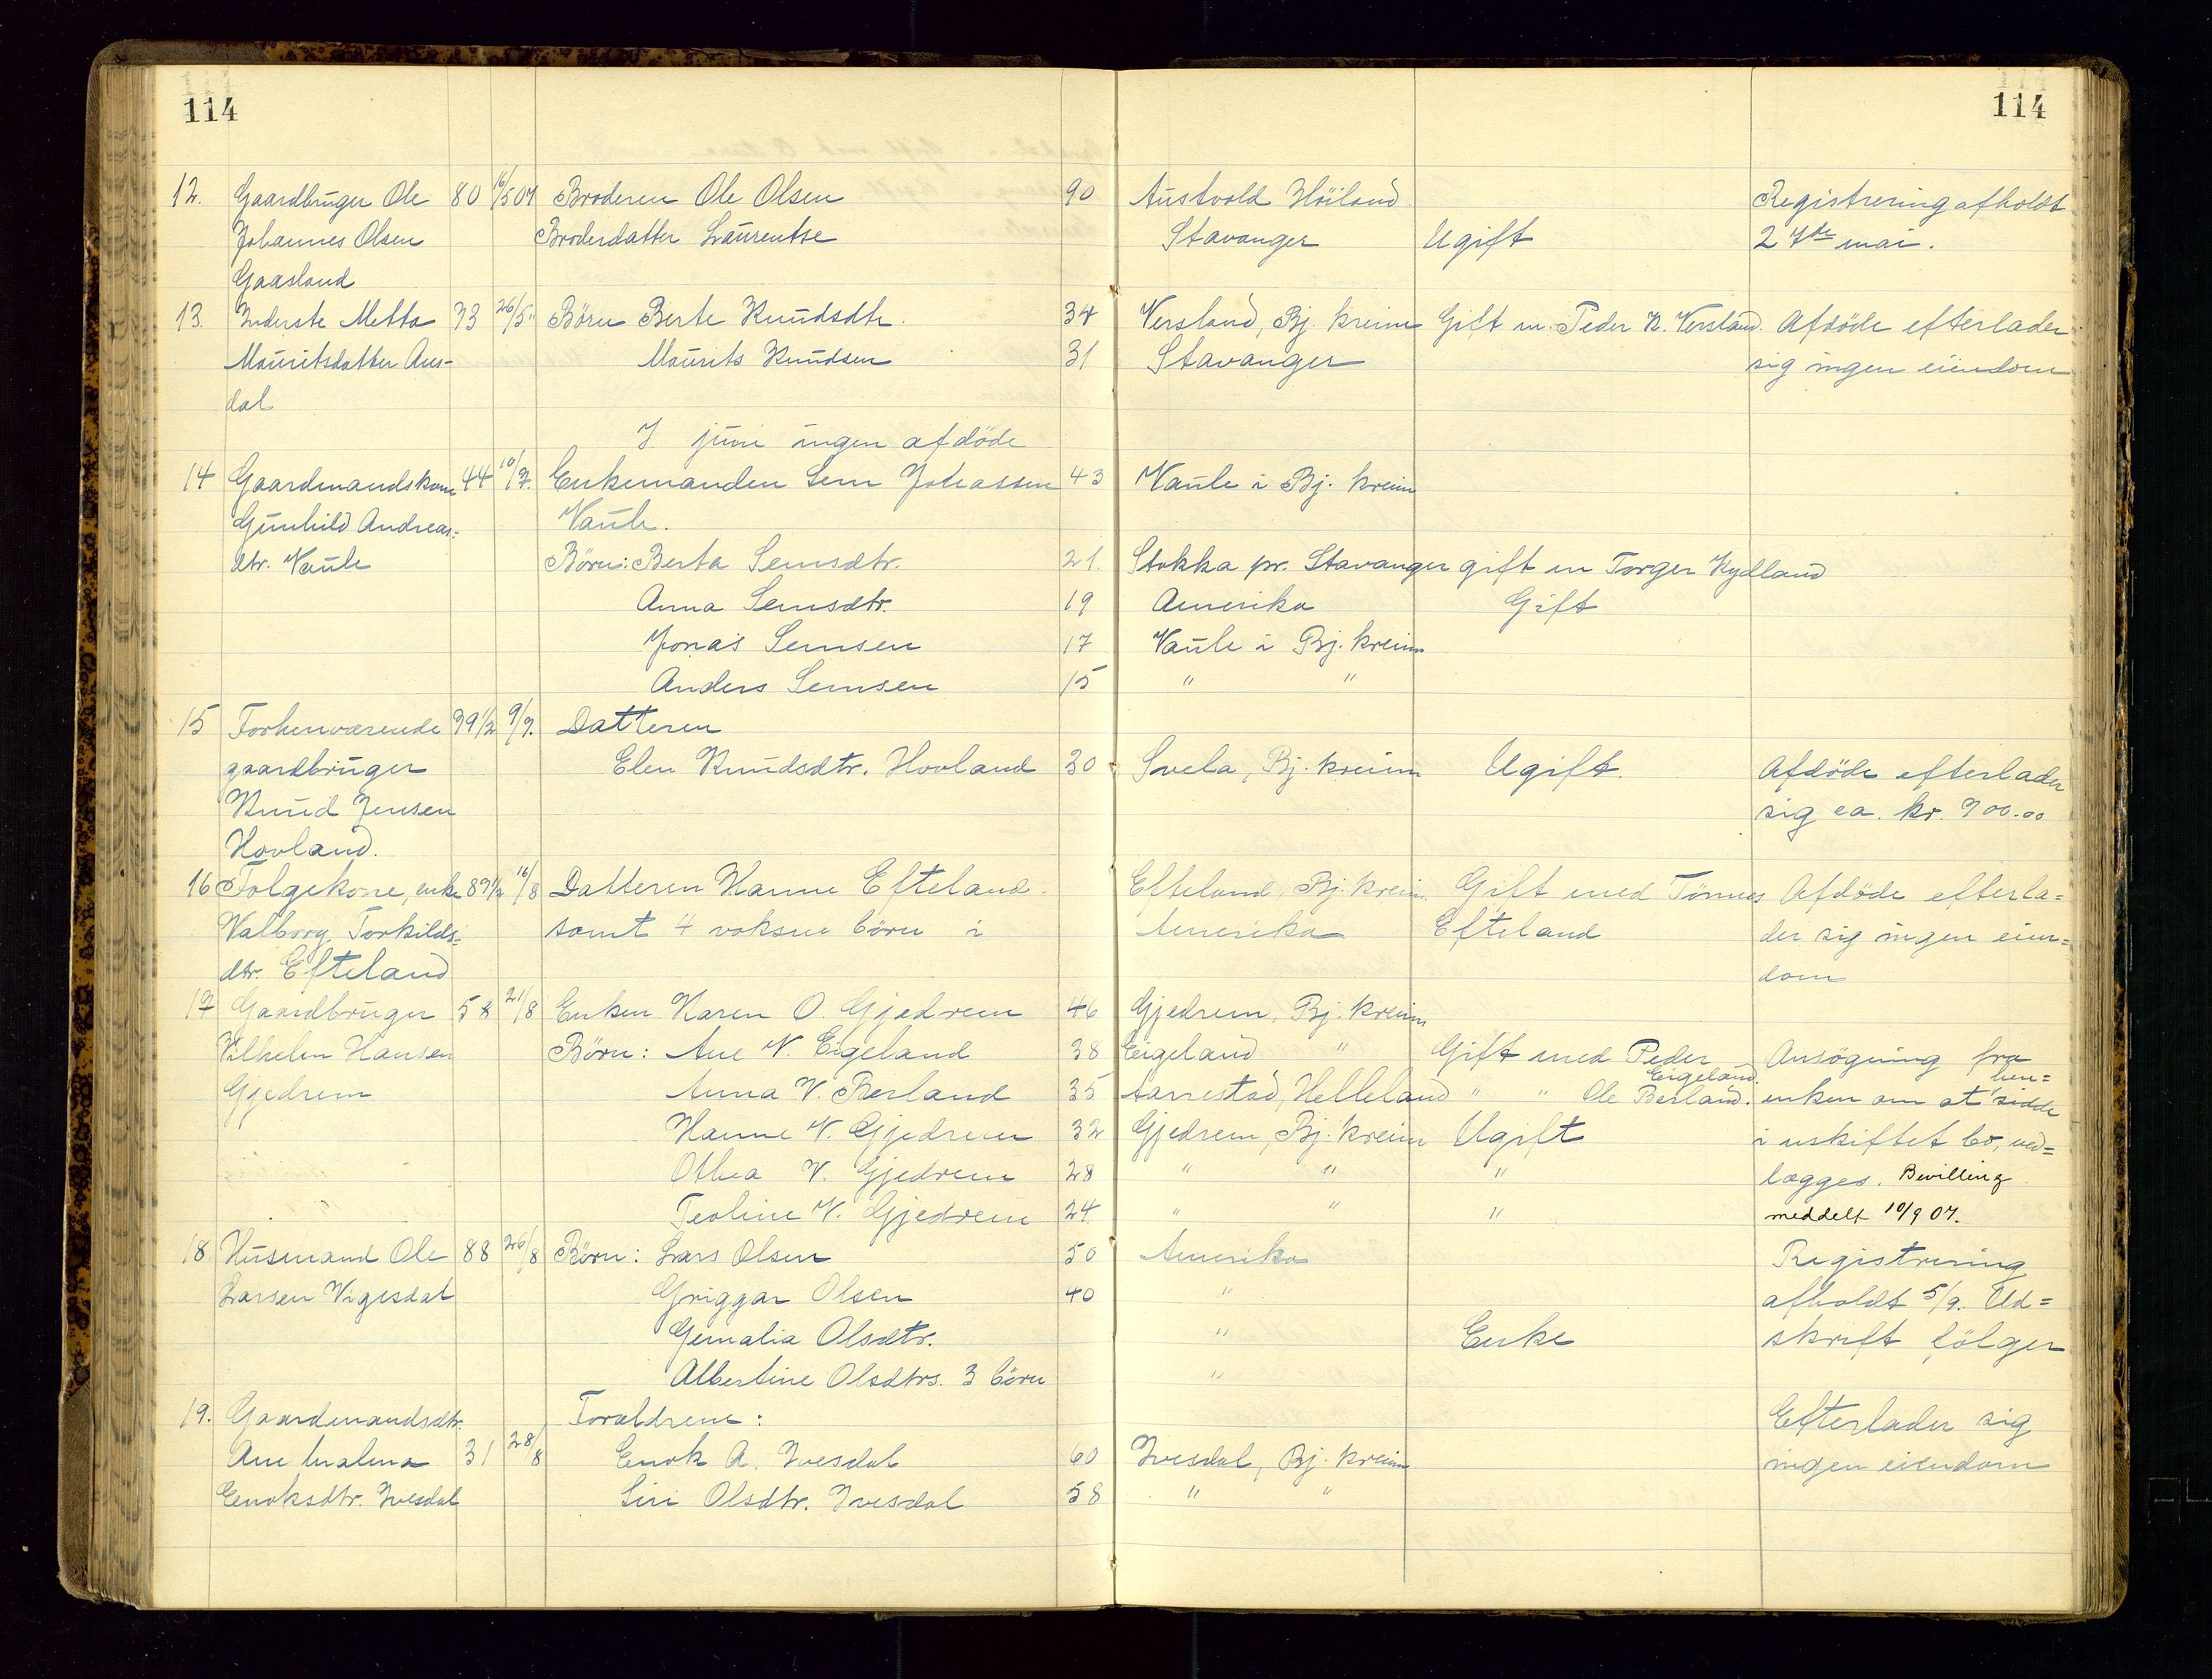 114
114
12. Gaardbruger Ole 80 16/5 07 Broderen Ole Olsen 90 Austvold Höiland Registrering afholdt
Johannes Olsen Broderdatter Laurentse Stavanger Ugift 27de mai.
Gaasland
13. Inderste Metta 73 26/5 " Börn Berte Knudsdtr. 34 Versland, Bj. kreim Gift m. Peder K. Versland. Afdöde efterlader
Mauritsdatter Aus- Maurits Knudsen 31 Stavanger sig ingen eiendom
dal
I juni ingen afdöde
14 Gaardmandskone 44 10/7. Enkemanden Sem Johassen 43 Vaule i Bj. kreim
Gunhild Andreas- Vaule.
dtr. Vaule Börn: Berta Semsdtr. 21. Stokka pr. Stavanger gift m Torger Kydland
Anna Semsdtr. 19 Amerika Gift
Jonas Semsen 17 Vaule i Bj. kreim
Anders Semsen 15 " "
15 Forhenværende 79 1/2 9/7. Datteren
gaardbruger Elen Knudsdtr. Hovland 30 Svela, Bj. kreim Ugift. Afdöde efterlader
Knud Jensen sig ca. kr. 700.00
Hovland.
16 Folgekone, enke 87 1/2 16/8 Datteren Hanne Efteland. Efteland, Bj. kreim. Gift med Tönnes Afdöde efterla=
Valborg Torkilds= samt 4 voksne börn i Amerika Efteland der sig ingen eien=
dtr. Efteland dom
17 Gaardbruger 58 21/8 Enken Karen O. Gjedrem 46 Gjedrem, Bj. kreim
Vilhelm Hansen Börn: Ane V. Eigeland 38 Eigeland " Gift med Peder Ansögning fra
Eigeland. hen=
Gjedrem Anna V. Berland 35 Aarrestad, Helleland " " Ole Berland. enken om at sidde
Hanne V. Gjedrem 32 Gjedrem, Bj. kreim Ugift i uskiftet bo, ved=
Othea V. Gjedrem 28 " " " lægges. Bevilling
Teoline V. Gjedrem 24 " " " meddelt 10/9 07.
18 Husmand Ole 88 26/8 Börn: Lars Olsen 50 Amerika Registrering
Larsen Vigesdal Griggar Olsen 40 " afholdt 5/9. Ud=
Gemalia Olsdtr. " Enke skrift fölger
Albertine Olsdtrs. 3 börn "
19. Gaardmandsdtr. Foraldrene: Efterlader sig
Ane Malena 31 28/8 Enok A. Ivesdal 60 Ivesdal, Bj. kreim ingen eiendom
Enoksdtr. Ivesdal Siri Olsdtr. Ivesdal 58 " "